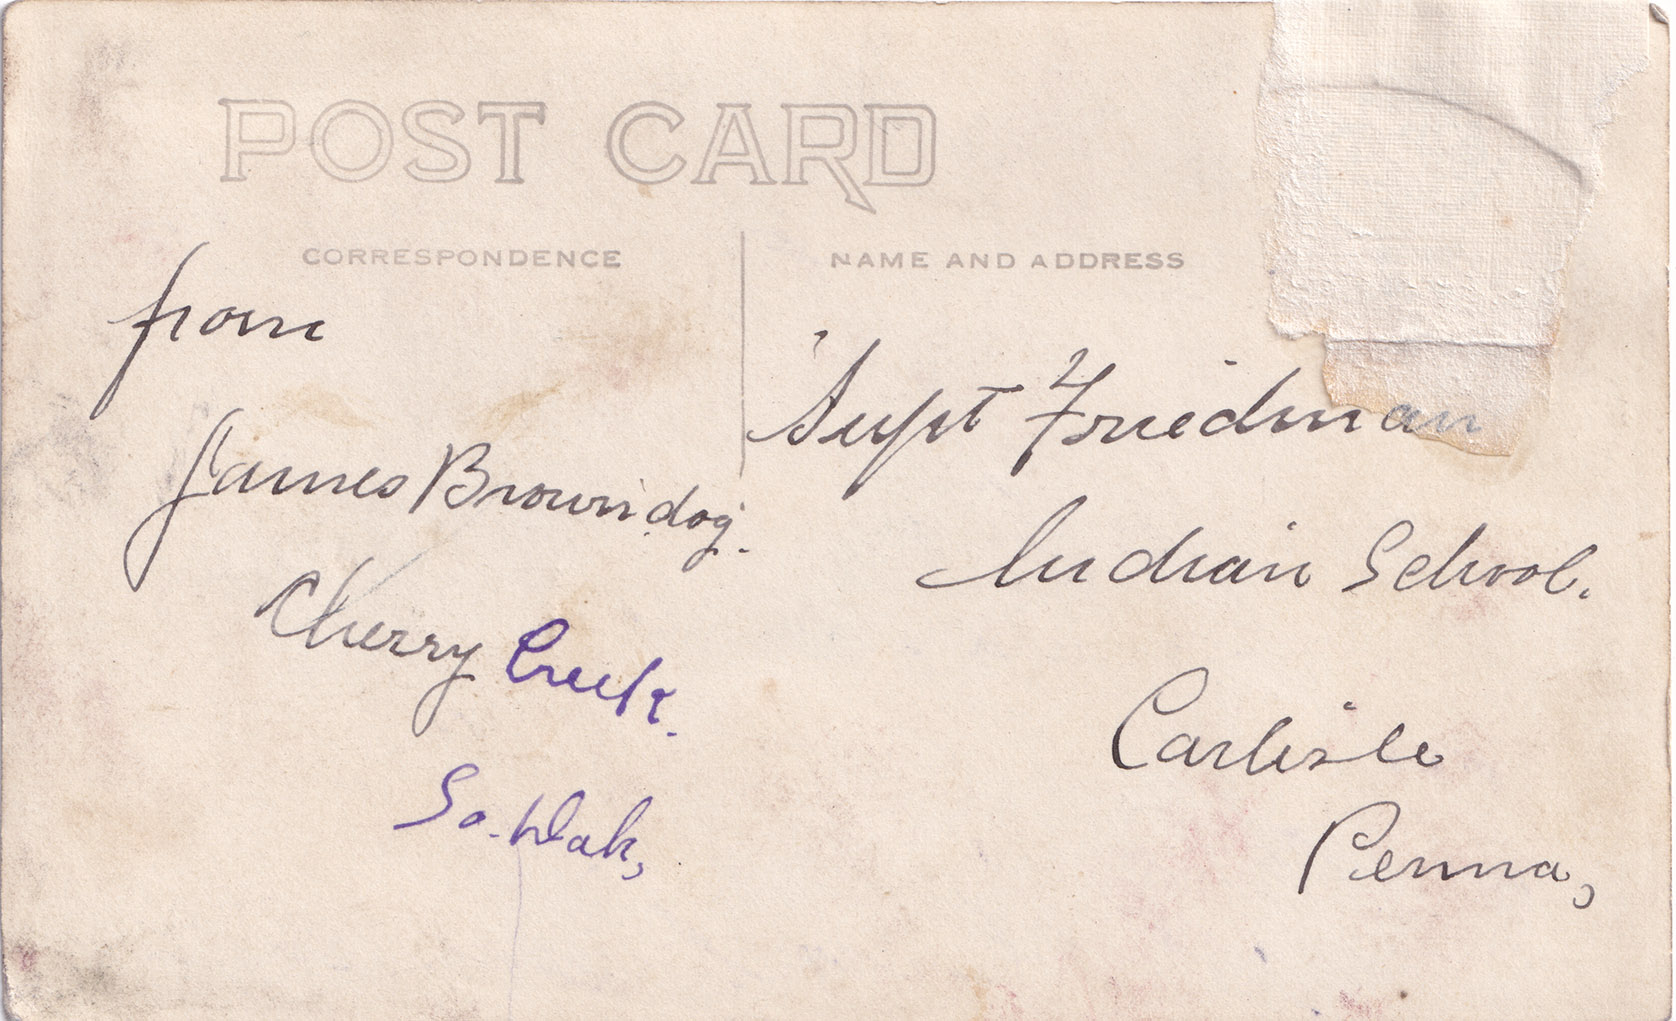 POST CARD
CORRESPONDENCE
from
James Browndog.
Cherry Creek.
So. Dak,
NAME AND ADDRESS
Supt Friedman
Indian School.
Carlisle
Penna,